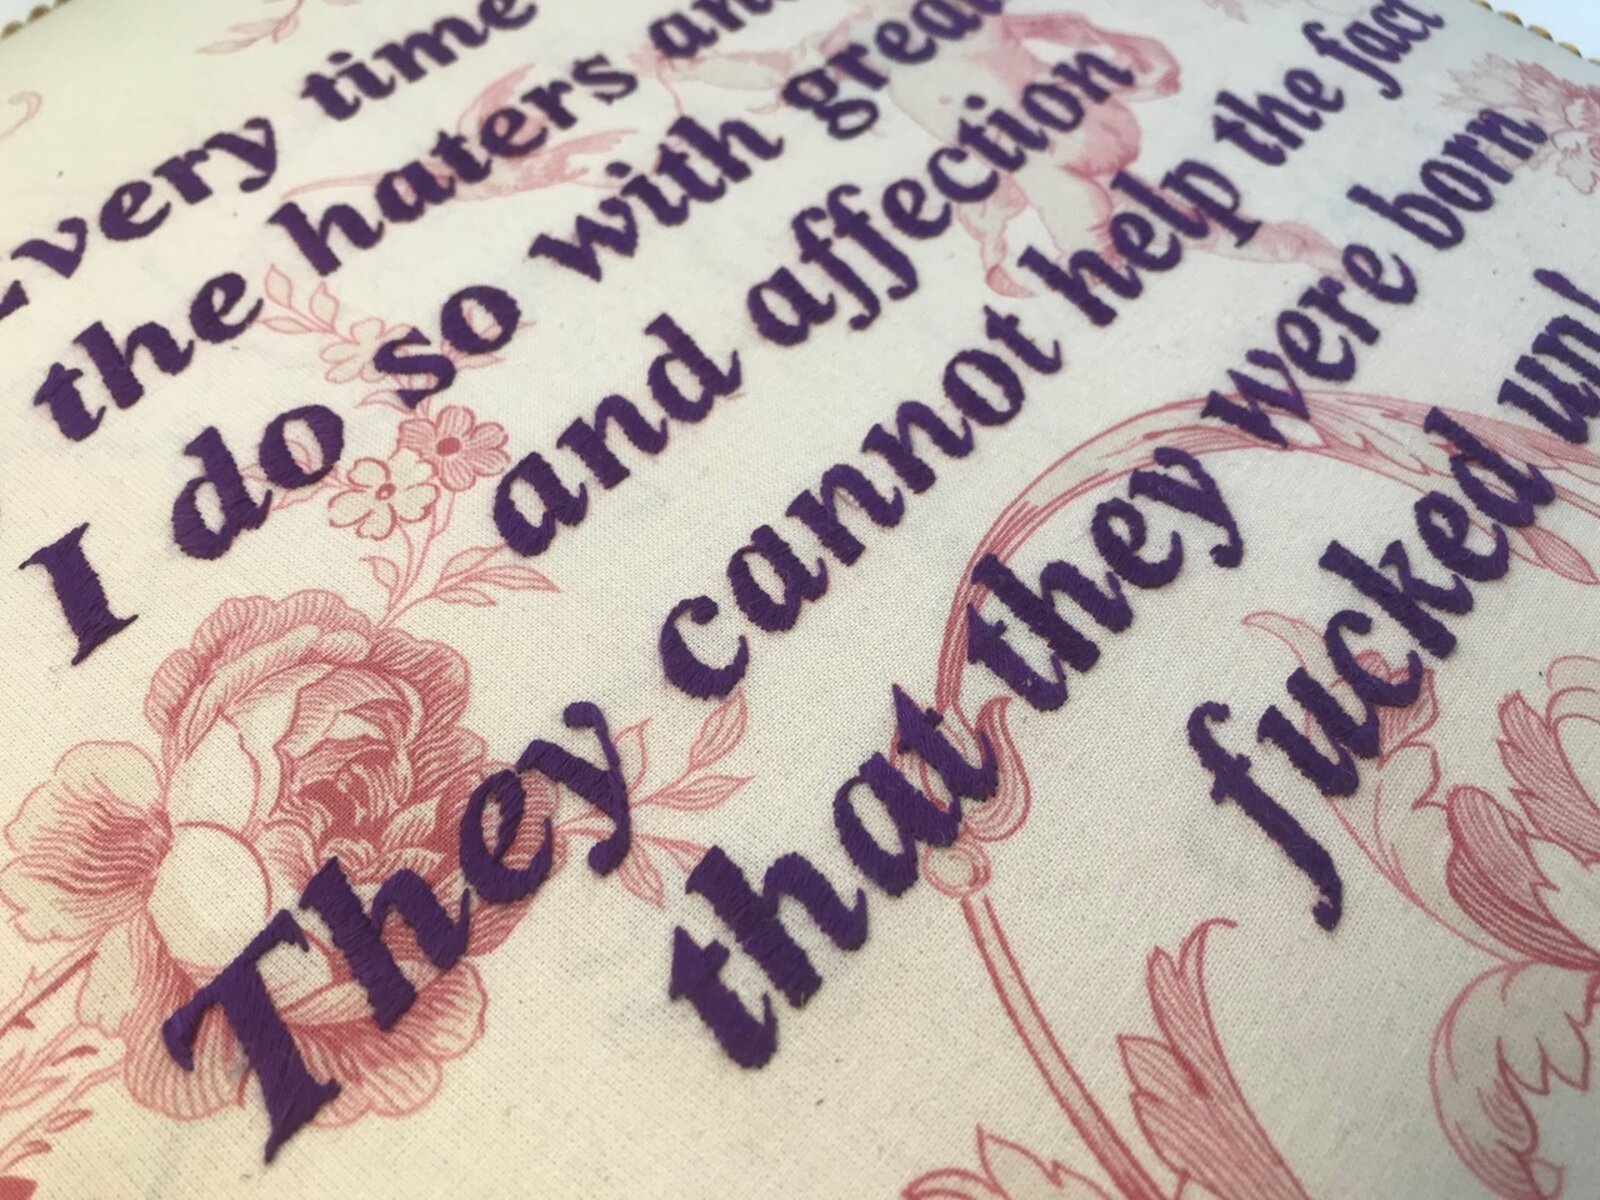 Every time
the haters and
I do so with great
and affection
They cannot help the fact
that they were born
fucked up!